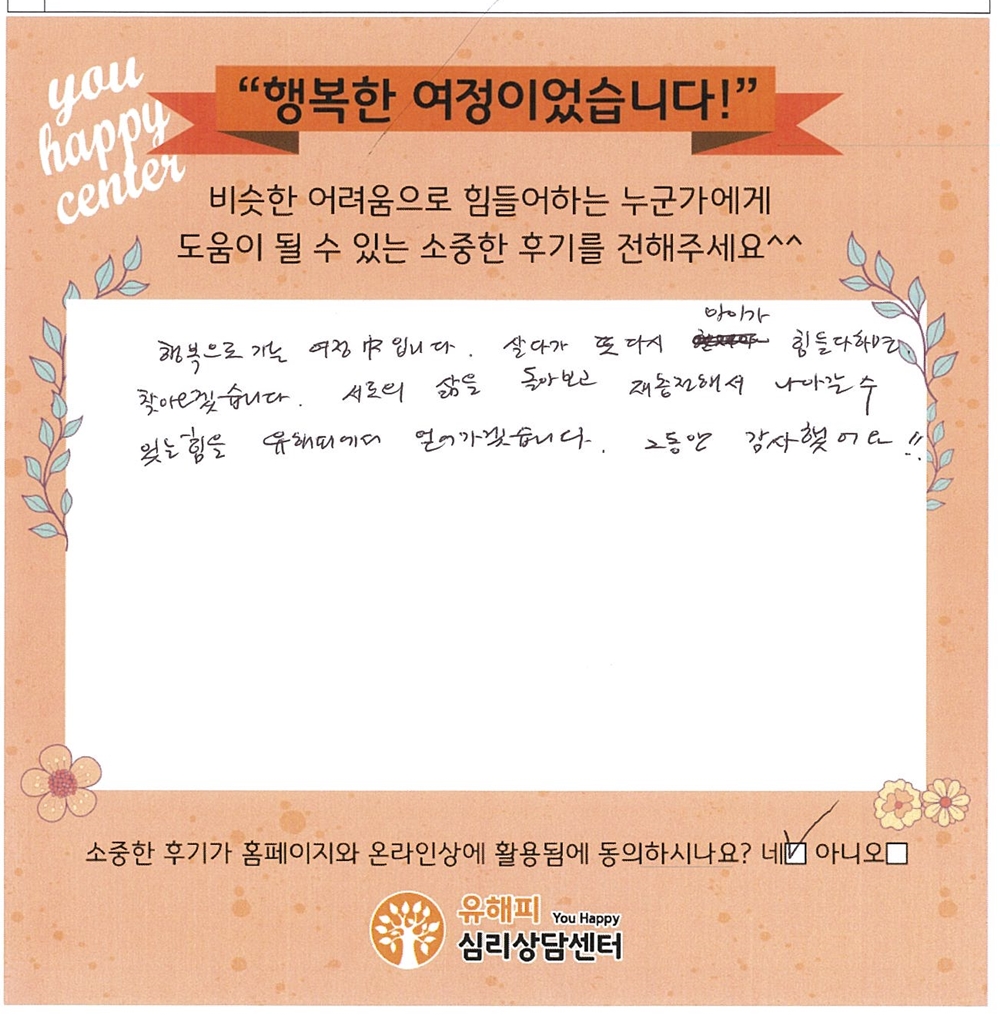 you
happy
center
“행복한 여정이었습니다!”
비슷한 어려움으로 힘들어하는 누군가에게
도움이 될 수 있는 소중한 후기를 전해주세요^^
행복으로 가는 여정 中 입니다. 살다가 또 다시 맘이가 힘들다하면,
찾아오겠습니다. 서로의 삶을 돌아보고 재충전해서 나아갈 수
있는 힘을 유해피에서 얻어가겠습니다. 그동안 감사했어요!!
소중한 후기가 홈페이지와 온라인상에 활용됨에 동의하시나요? 네 아니오
유해피 You Happy
심리상담센터